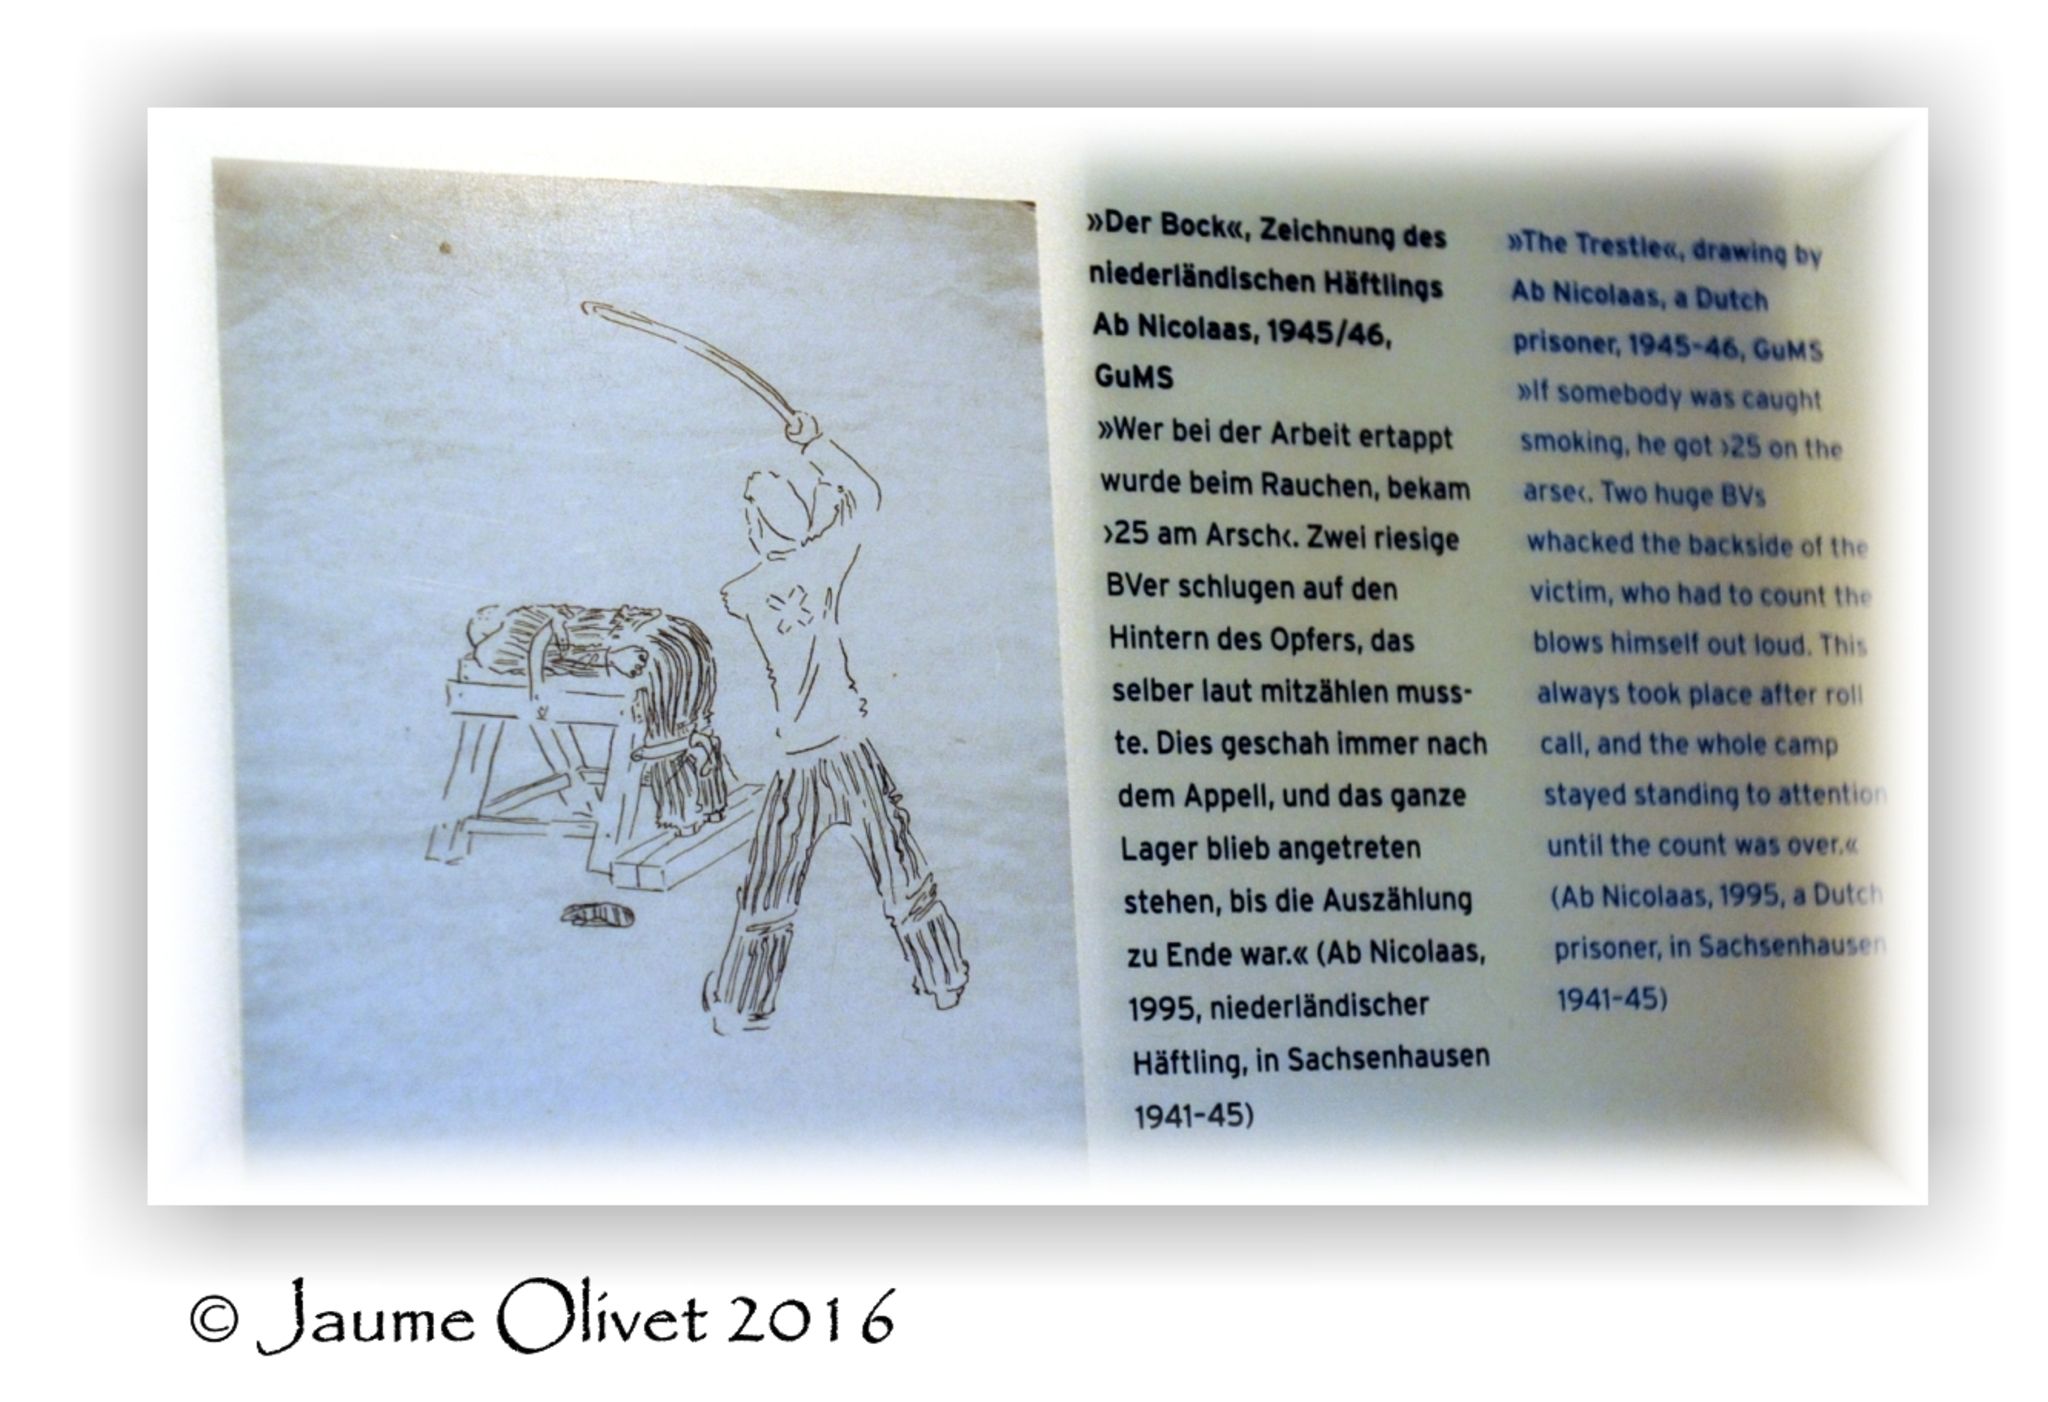 »Der Bock«, Zeichnung des
niederländischen Häftlings
Ab Nicolaas, 1945/46,
GuMS
»Wer bei der Arbeit ertappt
wurde beim Rauchen, bekam
›25 am Arsch‹. Zwei riesige
BVer schlugen auf den
Hintern des Opfers, das
selber laut mitzählen muss-
te. Dies geschah immer nach
dem Appell, und das ganze
Lager blieb angetreten
stehen, bis die Auszählung
zu Ende war.« (Ab Nicolaas,
1995, niederländischer
Häftling, in Sachsenhausen
1941-45)
»The Trestle«, drawing by
Ab Nicolaas, a Dutch
prisoner, 1945-46, GuMS
»If somebody was caught
smoking, he got ›25 on the
arse‹. Two huge BVs
whacked the backside of the
victim, who had to count the
blows himself out loud. This
always took place after roll
call, and the whole camp
stayed standing to attention
until the count was over.«
(Ab Nicolaas, 1995, a Dutch
prisoner, in Sachsenhausen
1941-45)
© Jaume Olivet 2016